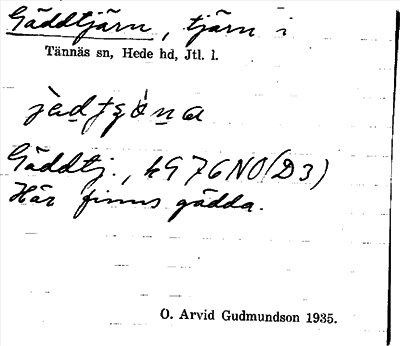 Gäddtjärn, tjärn i
Tännäs sn, Hede hd, Jtl. l.
Gäddtj., hG76NO(D3)
Här finns gädda.
O. Arvid Gudmundson 1935.